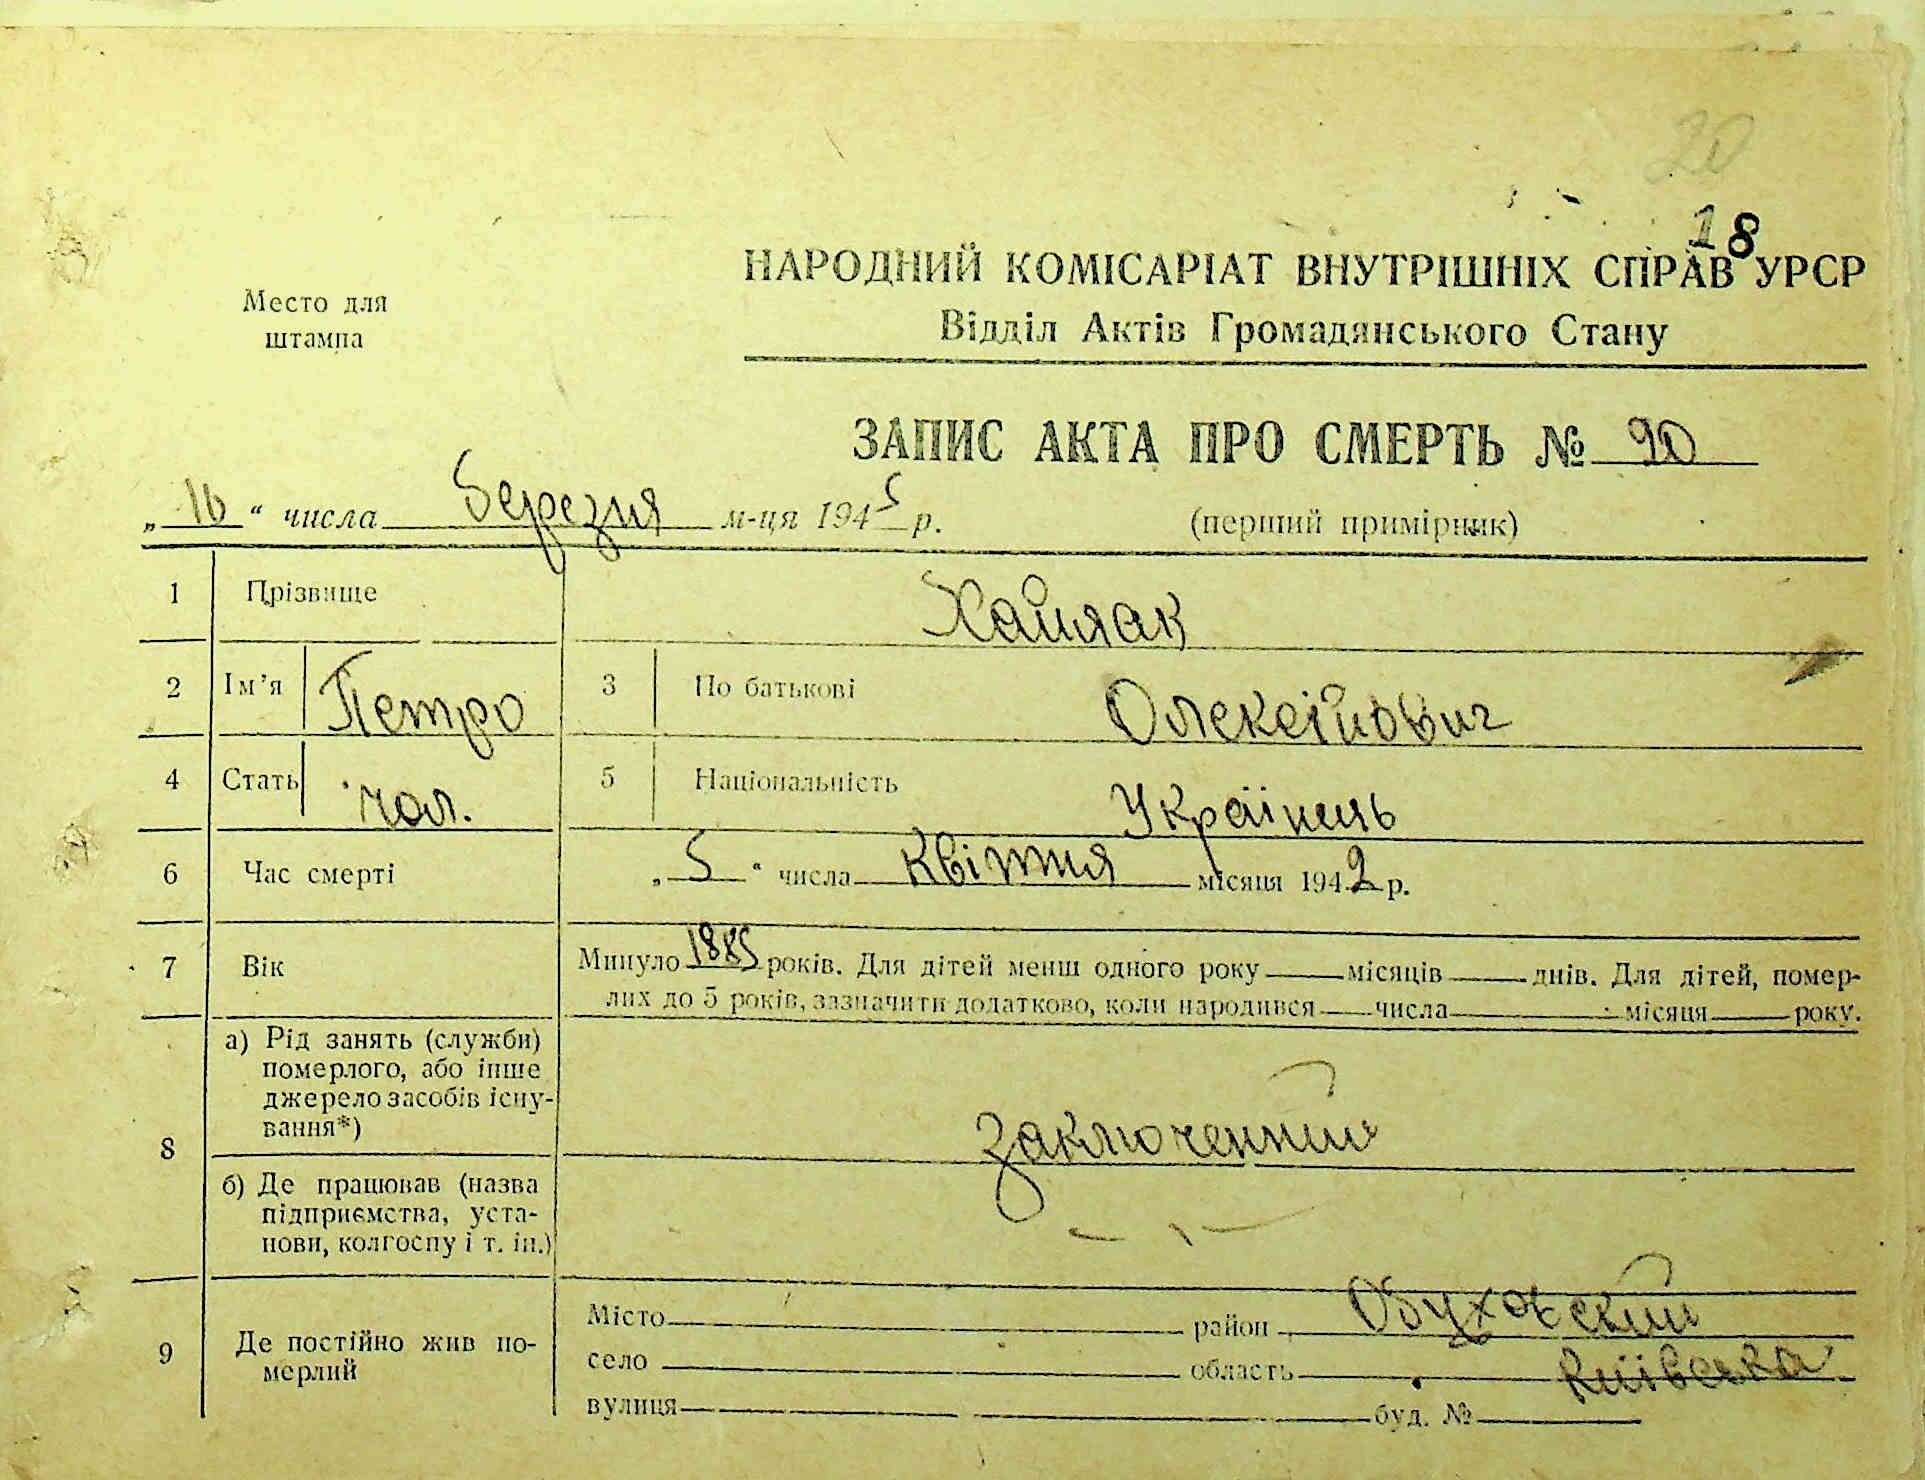 20
18
НАРОДНИЙ КОМІСАРІАТ ВНУТРІШНІХ СПРАВ УРСР
Место для
штампа
Відділ Актів Громадянського Стану
ЗАПИС АКТА ПРО СМЕРТЬ № 90
„16“ числа березня м-ця 1945 р.
(перший примірник)
1 Прізвище Хайлак
2 Ім’я Петро 3 По батькові Олексійович
4 Стать чол. 5 Національність Українець
6 Час смерті „5“ числа квітня місяця 1942 р.
7 Вік Минуло 1885 років. Для дітей менш одного року місяців днів. Для дітей, помер-
лих до 5 років, зазначити додатково, коли народився числа місяця року.
8 а) Рід занять (служби)
померлого, або інше
джерело засобів існу-
вання*)
заключенний
б) Де працював (назва
підприємства, уста-
нови, колгоспу і т. ін.)
— | —
9 Де постійно жив по-
мерлий
Місто район Обуховский
село область Київська
вулиця буд. №